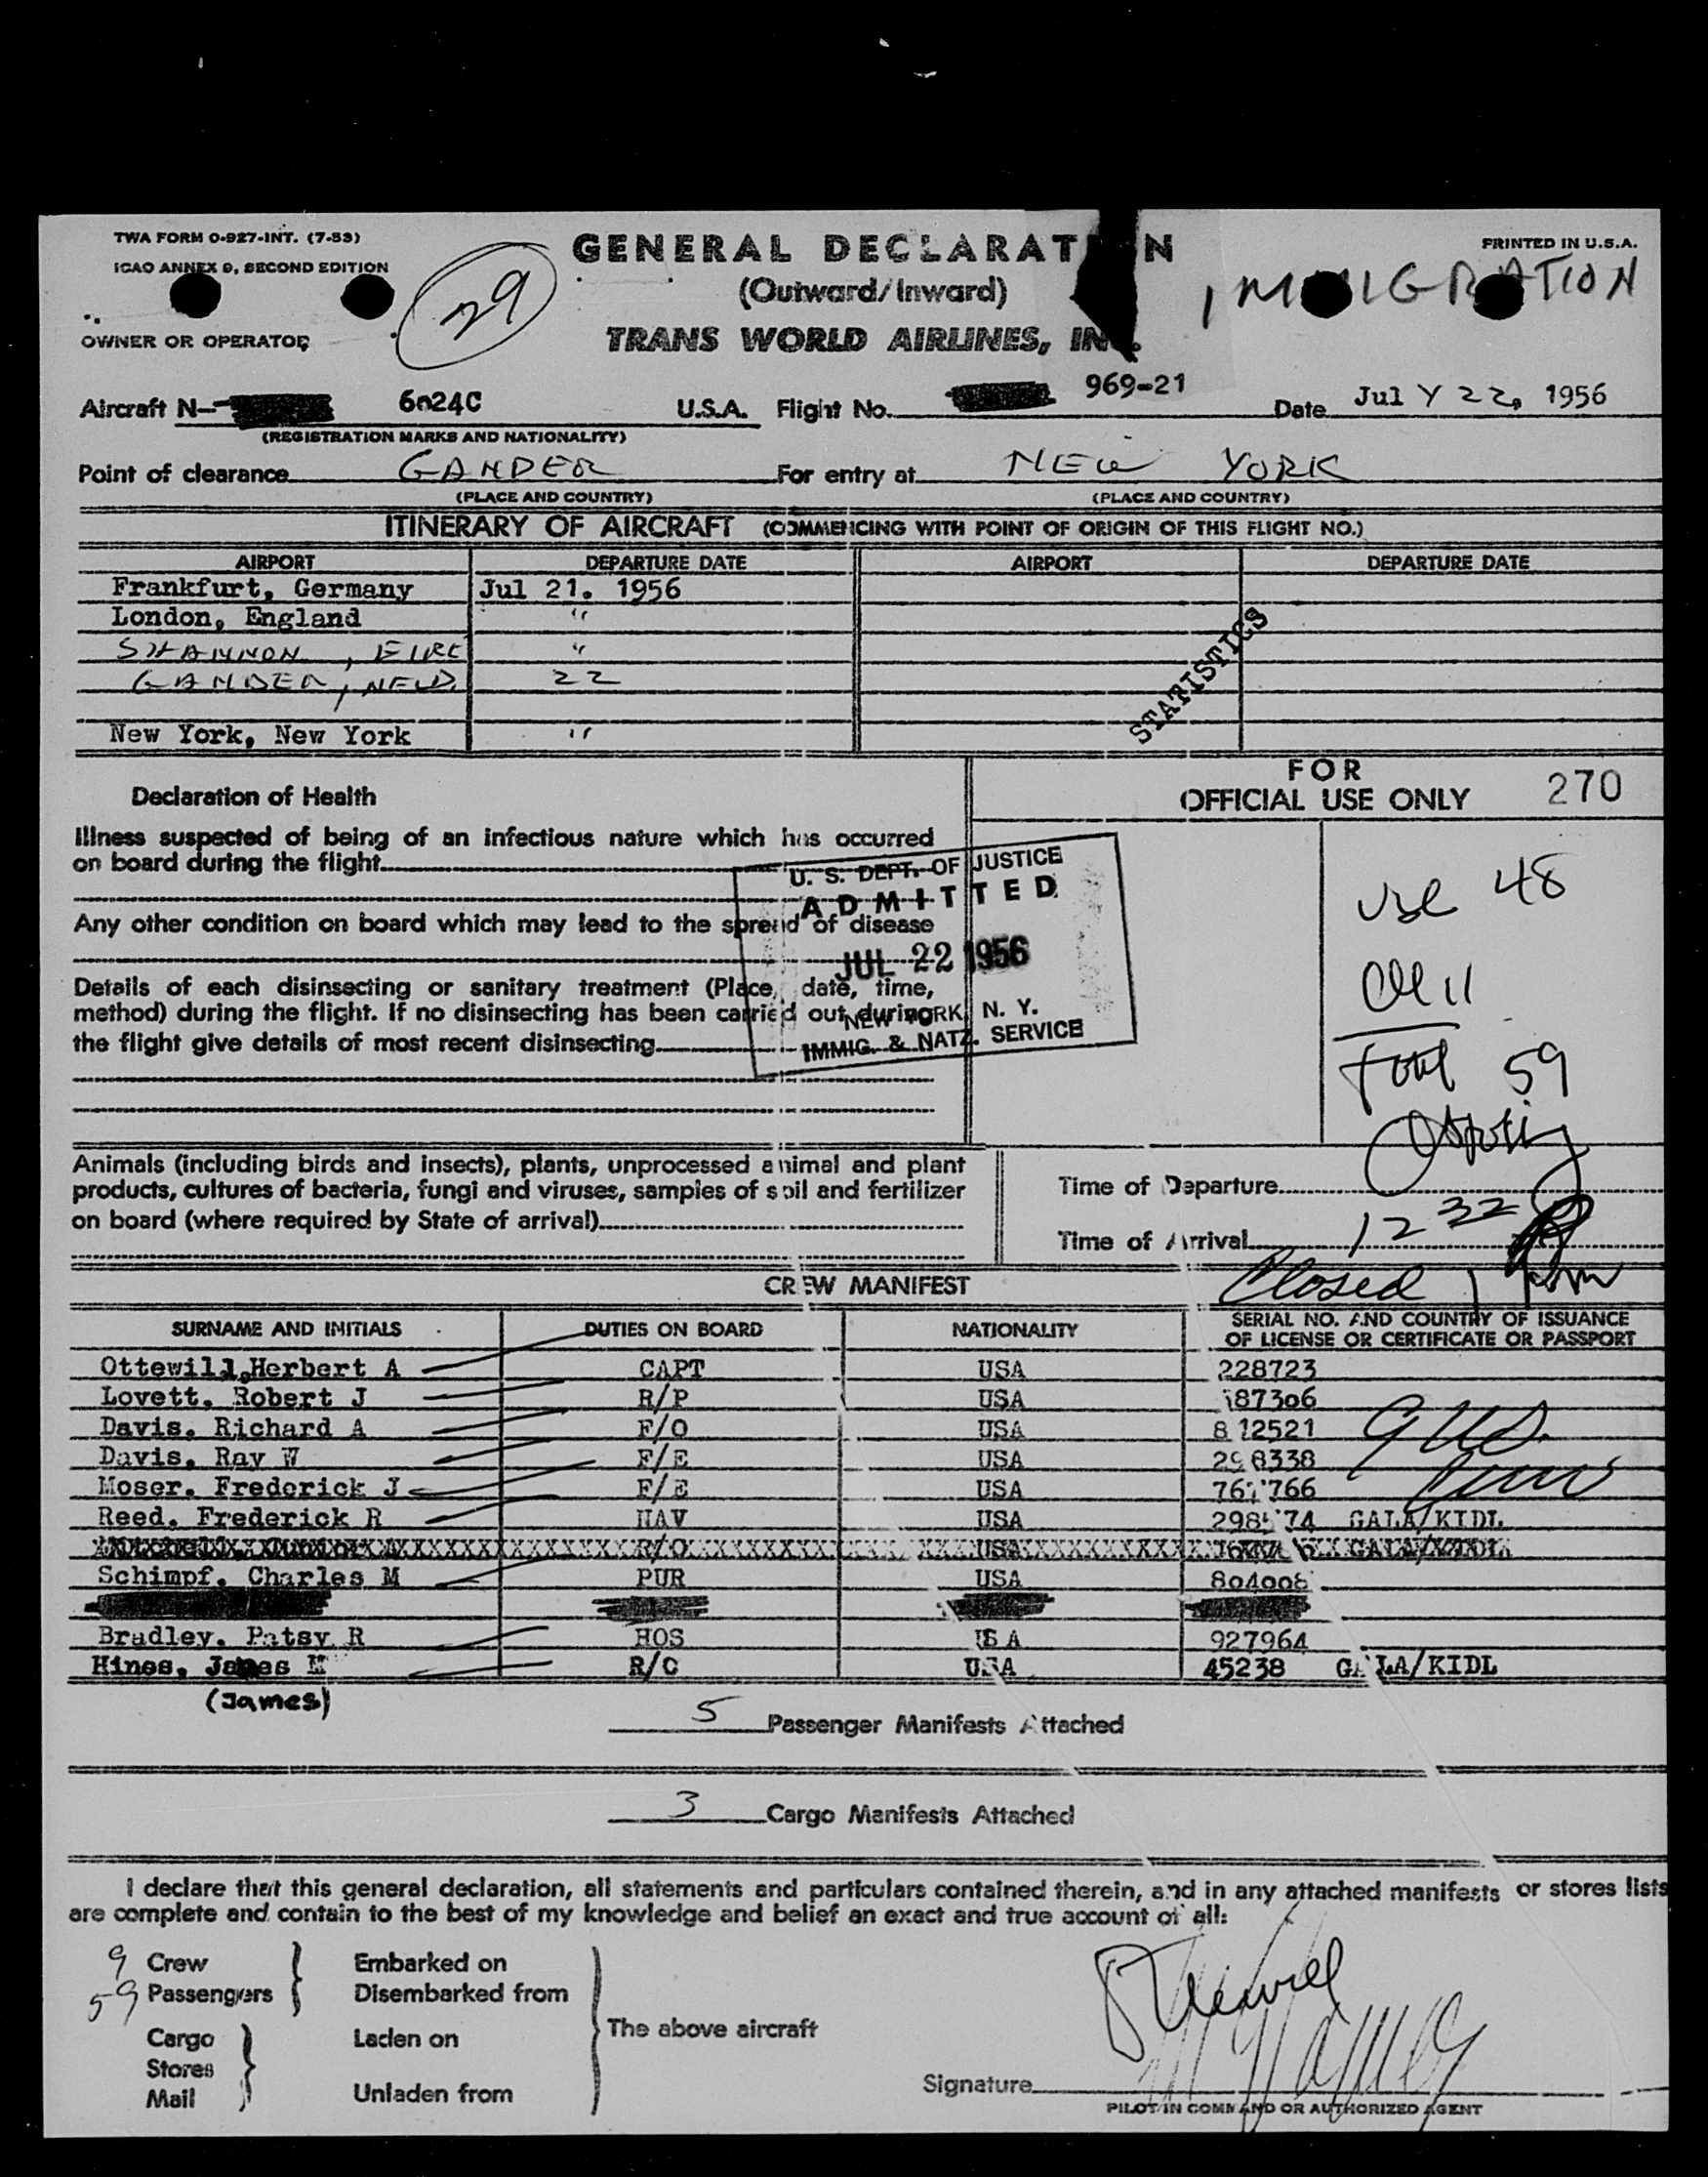 TWA FORM 0-927-INT. (7-53)
ICAO ANNEX 9, SECOND EDITION
29
GENERAL DECLARAT N
(Outward/Inward)
TRANS WORLD AIRLINES, IN .
PRINTED IN U.S.A.
IMMIGRATION
OWNER OR OPERATOR
Aircraft N- 6024C U.S.A. Flight No. 969-21 Date Jul Y 22, 1956
(REGISTRATION MARKS AND NATIONALITY)
Point of clearance GANDER For entry at NEW YORK
(PLACE AND COUNTRY) (PLACE AND COUNTRY)
ITINERARY OF AIRCRAFT (COMMENCING WITH POINT OF ORIGIN OF THIS FLIGHT NO.)
AIRPORT DEPARTURE DATE AIRPORT DEPARTURE DATE
Frankfurt, Germany Jul 21. 1956
London, England "
SHANNON, EIRE "
GANDER, NFLD. 22
New York, New York "
STATISTICS
FOR
OFFICIAL USE ONLY 270
Declaration of Health
Illness suspected of being of an infectious nature which has occurred
on board during the flight
Any other condition on board which may lead to the spread of disease
Details of each disinsecting or sanitary treatment (Place, date, time,
method) during the flight. If no disinsecting has been carried out during
the flight give details of most recent disinsecting
U. S. DEPT. OF JUSTICE
ADMITTED
JUL 22 1956
NEW YORK, N. Y.
IMMIG. & NATZ. SERVICE
48
11
Total 59
Animals (including birds and insects), plants, unprocessed animal and plant
products, cultures of bacteria, fungi and viruses, samples of soil and fertilizer
on board (where required by State of arrival)
Time of Departure
Time of Arrival 12 32
Closed
CREW MANIFEST
SURNAME AND INITIALS DUTIES ON BOARD NATIONALITY SERIAL NO. AND COUNTRY OF ISSUANCE
OF LICENSE OR CERTIFICATE OR PASSPORT
Ottewill,Herbert A CAPT USA 228723
Lovett, Robert J R/P USA 187306
Davis. Richard A F/O USA 812521
Davis. Ray W F/E USA 298338
Moser. Frederick J F/E USA 767766
Reed. Frederick R NAV USA 298574 GALA/KIDL
R/O USA
Schimpf. Charles M PUR USA 804008
Bradley. Patsy R HOS USA 927964
Hines, James M R/O USA 45238 GALA/KIDL
(James)
5 Passenger Manifests Attached
3 Cargo Manifests Attached
I declare that this general declaration, all statements and particulars contained therein, and in any attached manifests or stores lists
are complete and contain to the best of my knowledge and belief an exact and true account of all:
9 Crew Embarked on
59 Passengers Disembarked from
The above aircraft
Cargo Laden on
Stores
Mail Unladen from
Signature
PILOT IN COMMAND OR AUTHORIZED AGENT